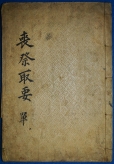 喪祭取要 單